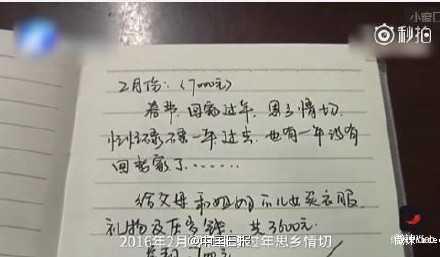 小窗口
秒拍
2月份：（7000元）
春节，回家过年，思乡情切，
忙忙碌碌一年过去，也有一年没有
回老家了……
给父母和姐姐家儿女买衣服，
礼物及压岁钱，共3600元.
2016年2月 回家过年思乡情切
@中国日报